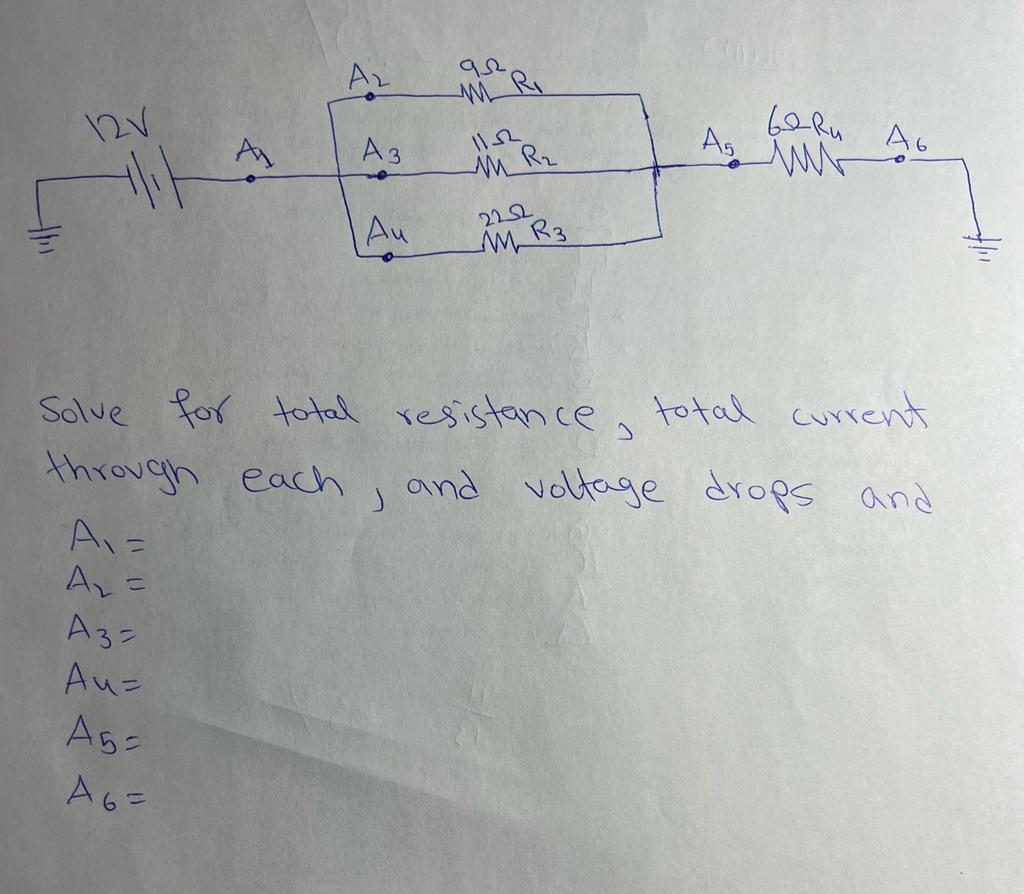 A2 9Ω R1
12V
A1
A3 11Ω R2
A5 6Ω R4 A6
A4 22Ω R3
Solve for total resistance, total current
through each, and voltage drops and
A1=
A2=
A3=
A4=
A5=
A6=